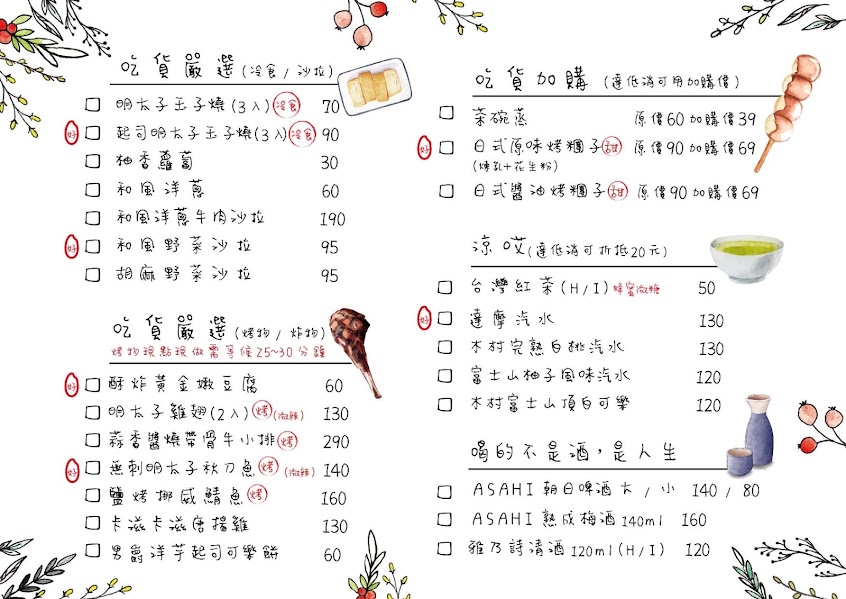 吃貨嚴選(冷食/沙拉)
明太子玉子燒(3入)冷食 70
好 起司明太子玉子燒(3入)冷食 90
柚香蘿蔔 30
和風洋蔥 60
和風洋蔥牛肉沙拉 190
好 和風野菜沙拉 95
胡麻野菜沙拉 95
吃貨嚴選(烤物/炸物)
烤物現點現做需等候25~30分鐘
好 酥炸黃金嫩豆腐 60
明太子雞翅(2入)烤(微辣) 130
蒜香醬燒帶骨牛小排烤 290
好 無刺明太子秋刀魚烤(微辣) 140
鹽烤挪威鯖魚烤 160
卡滋卡滋唐揚雞 130
男爵洋芋起司可樂餅 60
吃貨加購(達低消可用加購價)
茶碗蒸 原價60加購價39
好 日式原味烤糰子甜 原價90加購價69
(煉乳+花生粉)
日式醬油烤糰子甜 原價90加購價69
涼哎(達低消可折抵20元)
台灣紅茶(H/I)蜂蜜微糖 50
好 達摩汽水 130
木村完熟白桃汽水 130
富士山柚子風味汽水 120
木村富士山頂白可樂 120
喝的不是酒,是人生
ASAHI朝日啤酒大/小 140/80
ASAHI熟成梅酒140ml 160
雅乃詩清酒120ml(H/I) 120